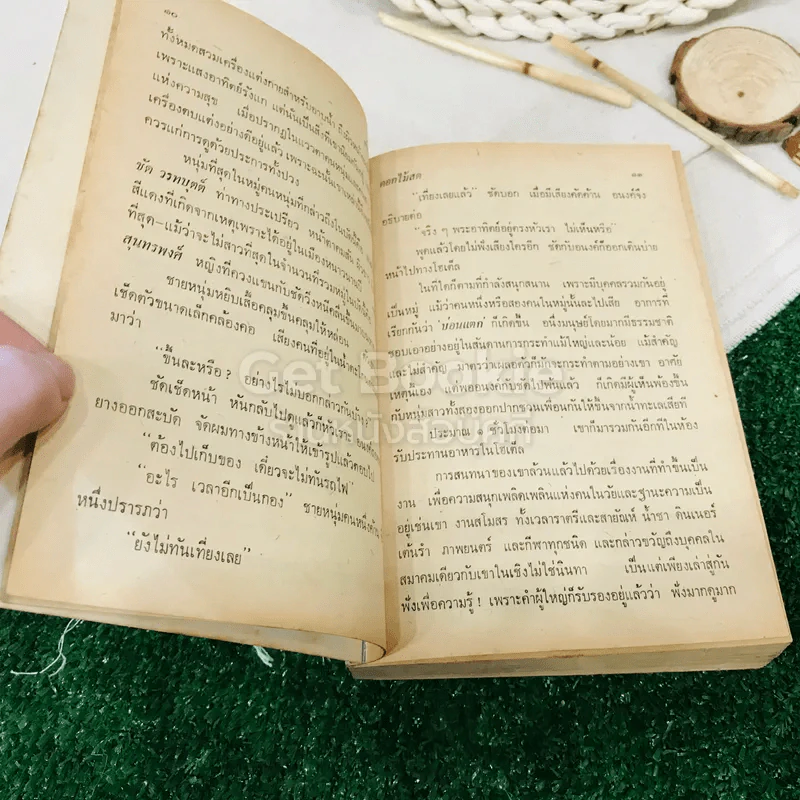 ๑๐
ทั้งหมดสวมเครื่องแต่งกายสำหรับอาบน้ำ
เพราะแสงอาทิตย์รังแก แต่นั่นเป็นสิ่งที่เขา
แห่งความสุข เมื่อปรากฏในแววตาคนหนุ่ม
เครื่องตบแต่งอย่างดีอยู่แล้ว เพราะฉะนั้นเขาเหล่า
ควรแก่การดูด้วยประการทั้งปวง
หนุ่มที่สุดในหมู่คนหนุ่มที่กล่าวถึงใน
ชัด วรทบุตต์ ท่าทางปะเปรียว หน้าตาคมสัน
สีแดงที่เกิดจากเหตุเพราะได้อยู่ในเมืองหนาวนานปี
ที่สุด—แม้ว่าจะไม่สาวที่สุดในจำนวนที่รวมหมู่
สุนทรพงศ์ หญิงที่ควงแขนกับชัดวิ่งหนีคลื่นขึ้นมา
ชายหนุ่มหยิบเสื้อคลุมขึ้นคลุมให้หล่อน
เช็ดตัวขนาดเล็กคล้องคอ เสียงคนที่อยู่ในน้ำ
มาว่า
“ขึ้นละหรือ? อย่างไรไม่บอกกล่าวกันบ้าง?”
ชัดเช็ดหน้า หันกลับไปดูแล้วก็หัวเราะ
ยางออกสะบัด จัดผมทางข้างหน้าให้เข้ารูปแล้วตอบไป
“ต้องไปเก็บของ เดี๋ยวจะไม่ทันรถไฟ”
“อะไร เวลาอีกเป็นกอง” ชายหนุ่มคนหนึ่ง
หนึ่งปรารภว่า
“ยังไม่ทันเที่ยงเลย”
ดอกไม้สด
๑๑
“เที่ยงเลยแล้ว” ชัดบอก เมื่อมีเสียงคัดค้าน อนงค์จึง
อธิบายต่อ
“จริง ๆ พระอาทิตย์อยู่ตรงหัวเรา ไม่เห็นหรือ”
พูดแล้วโดยไม่ฟังเสียงใครอีก ชัดกับอนงค์ก็ออกเดินบ่าย
หน้าไปทางโฮเต็ล
ในที่ใดก็ตามที่กำลังสนุกสนาน เพราะมีบุคคลรวมกันอยู่
เป็นหมู่ แม้ว่าคนหนึ่งหรือสองคนในหมู่นั้นละไปเสีย อาการที่
เรียกกันว่า ‘บ่อนแตก’ ก็เกิดขึ้น อนึ่งมนุษย์โดยมากมีธรรมชาติ
ชอบเอาอย่างอยู่ในสันดานการกระทำแม้ใหญ่และน้อย แม้สำคัญ
และไม่สำคัญ มาตรว่าเผลอตัวก็มักจะกระทำตามอย่างเขา อาศัย
เหตุนี้เอง แต่พออนงค์กับชัดไปพ้นแล้ว ก็เกิดมีผู้เห็นพ้องขึ้น
กับหนุ่มสาวทั้งสองออกปากชวนเพื่อนกันให้ขึ้นจากน้ำทะเลเสียที
ประมาณ ๑ ชั่วโมงต่อมา เขาก็มารวมกันอีกที่ในห้อง
รับประทานอาหารในโฮเต็ล
การสนทนาของเขาล้วนแล้วไปด้วยเรื่องงานที่ทำขึ้นเป็น
งาน เพื่อความสนุกเพลิดเพลินแห่งคนในวัยและฐานะความเป็น
อยู่เช่นเขา งานสโมสร ทั้งเวลาราตรีและสายัณห์ น้ำชา ดินเนอร์
เต้นรำ ภาพยนตร์ และกีฬาทุกชนิด และกล่าวขวัญถึงบุคคลใน
สมาคมเดียวกับเขาในเชิงไม่ใช่นินทา เป็นแต่เพียงเล่าสู่กัน
ฟังเพื่อความรู้! เพราะคำผู้ใหญ่ก็รับรองอยู่แล้วว่า ฟังมากดูมาก
Get Bookie
ร้านหนังสือเก่า